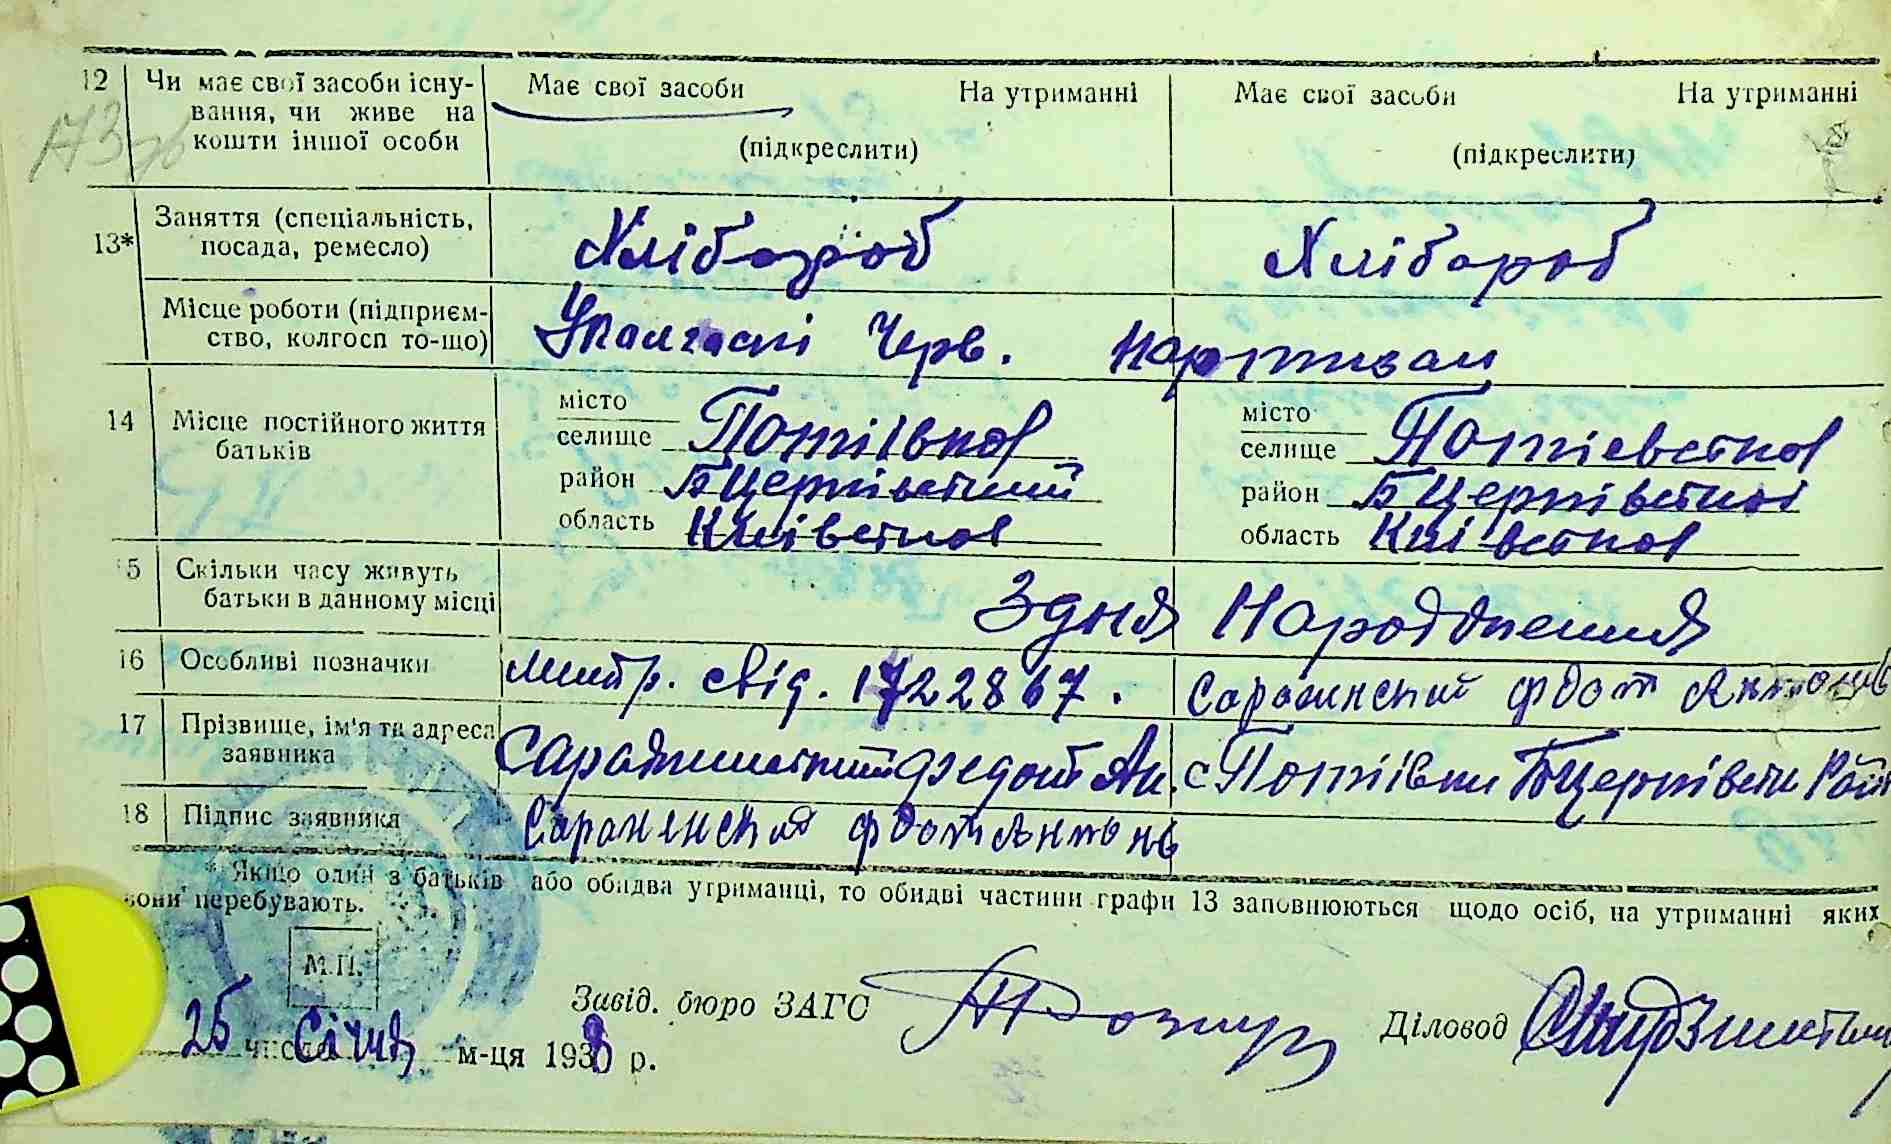 12 Чи має свої засоби існу- Має свої засоби На утриманні Має свої засоби На утриманні
вання, чи живе на
кошти іншої особи (підкреслити) (підкреслити)
173
13* Заняття (спеціальність, Хлібороб Хлібороб
посада, ремесло)
Місце роботи (підприєм- Уколгоспі Черв. Партизан
ство, колгосп то-що)
14 Місце постійного життя місто
батьків селище Потіівка місто селище Потіевська
район БЦерківський район БЦерківські
область Київська область Київська
15 Скільки часу живуть Здня Народження
батьки в данному місці
16 Особливі позначки метр. свід. 1722867. Сараженский Фдот Антонів
17 Прізвище, ім'я та адреса Саражинський Федот Ан. с Потіівки БЦерківськ Рай
заявника
18 Підпис заявника Сараженский Фдот Антонів
* Якщо один з батьків або обидва утриманці, то обидві частини графи 13 заповнюються щодо осіб, на утриманні яких
вони перебувають.
М.П.
Завід. бюро ЗАГС Діловод
25 числа Січня м-ця 1938 р.